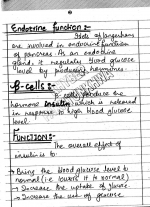 Endocrine function :-
Islets of langerhans
are involved in endocrine function
of pancreas. As an endocrine
gland, it regulates blood glucose
level by producing hormones.
β-cells :-
β-cells produce the
hormone Insulin which is released
in response to high blood glucose
level.
FUNCTION:-
The overall effect of
insulin is to:
→ Bring the blood glucose level to
normal (i.e. lowers it to normal)
→ Increase the uptake of glucose
→ Increase the use of glucose